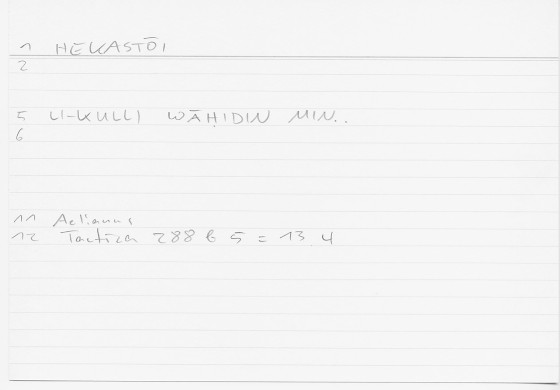 1 HEKASTŌI
2
5 LI-KULLI WĀḤIDIN MIN..
6
11 Aelianus
12 Tactica 288 b 5 = 13.4